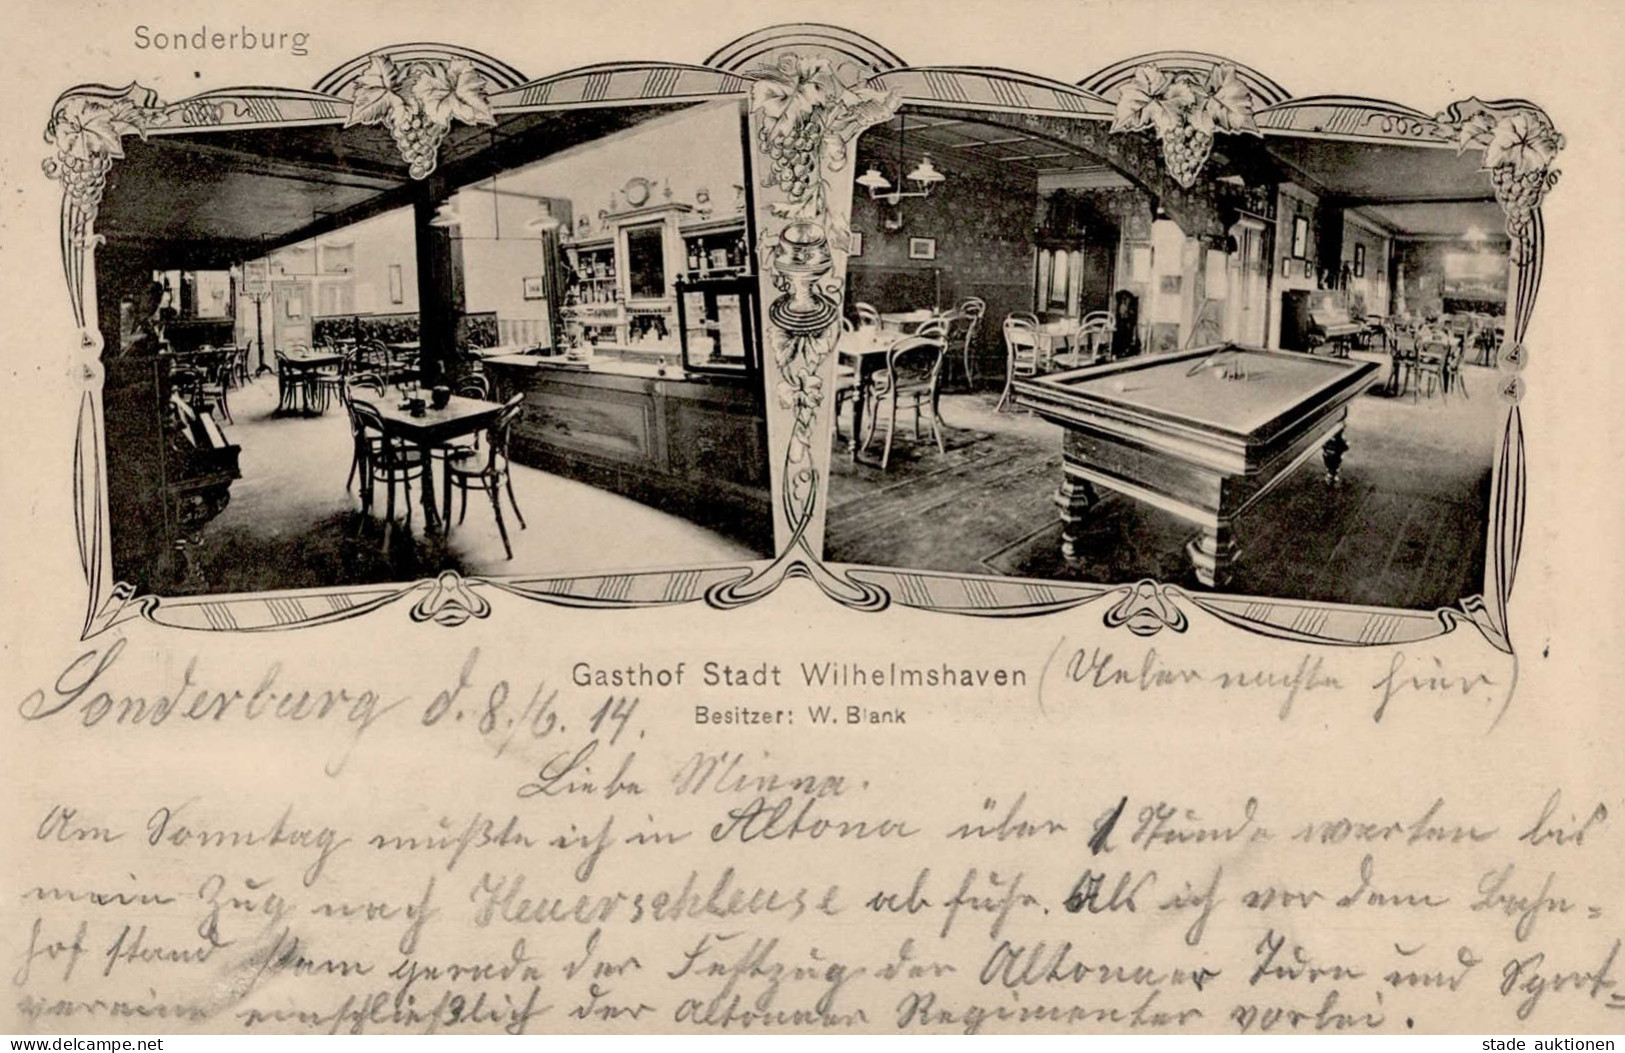 Sonderburg
Gasthof Stadt Wilhelmshaven
(Uebernachte hier.)
Besitzer: W. Blank
Sonderburg d. 8./6. 14.
Liebe Minna.
Am Sonntag mußte ich in Altona über 1 Stunde warten bis
mein Zug nach abfuhr. Als ich vor dem Bahn=
hof stand kam gerade der Festzug der Altonaer Turn und Sport=
vereine einschließlich der Altonaer Regimenter vorbei.
delcampe.net
stade auktionen